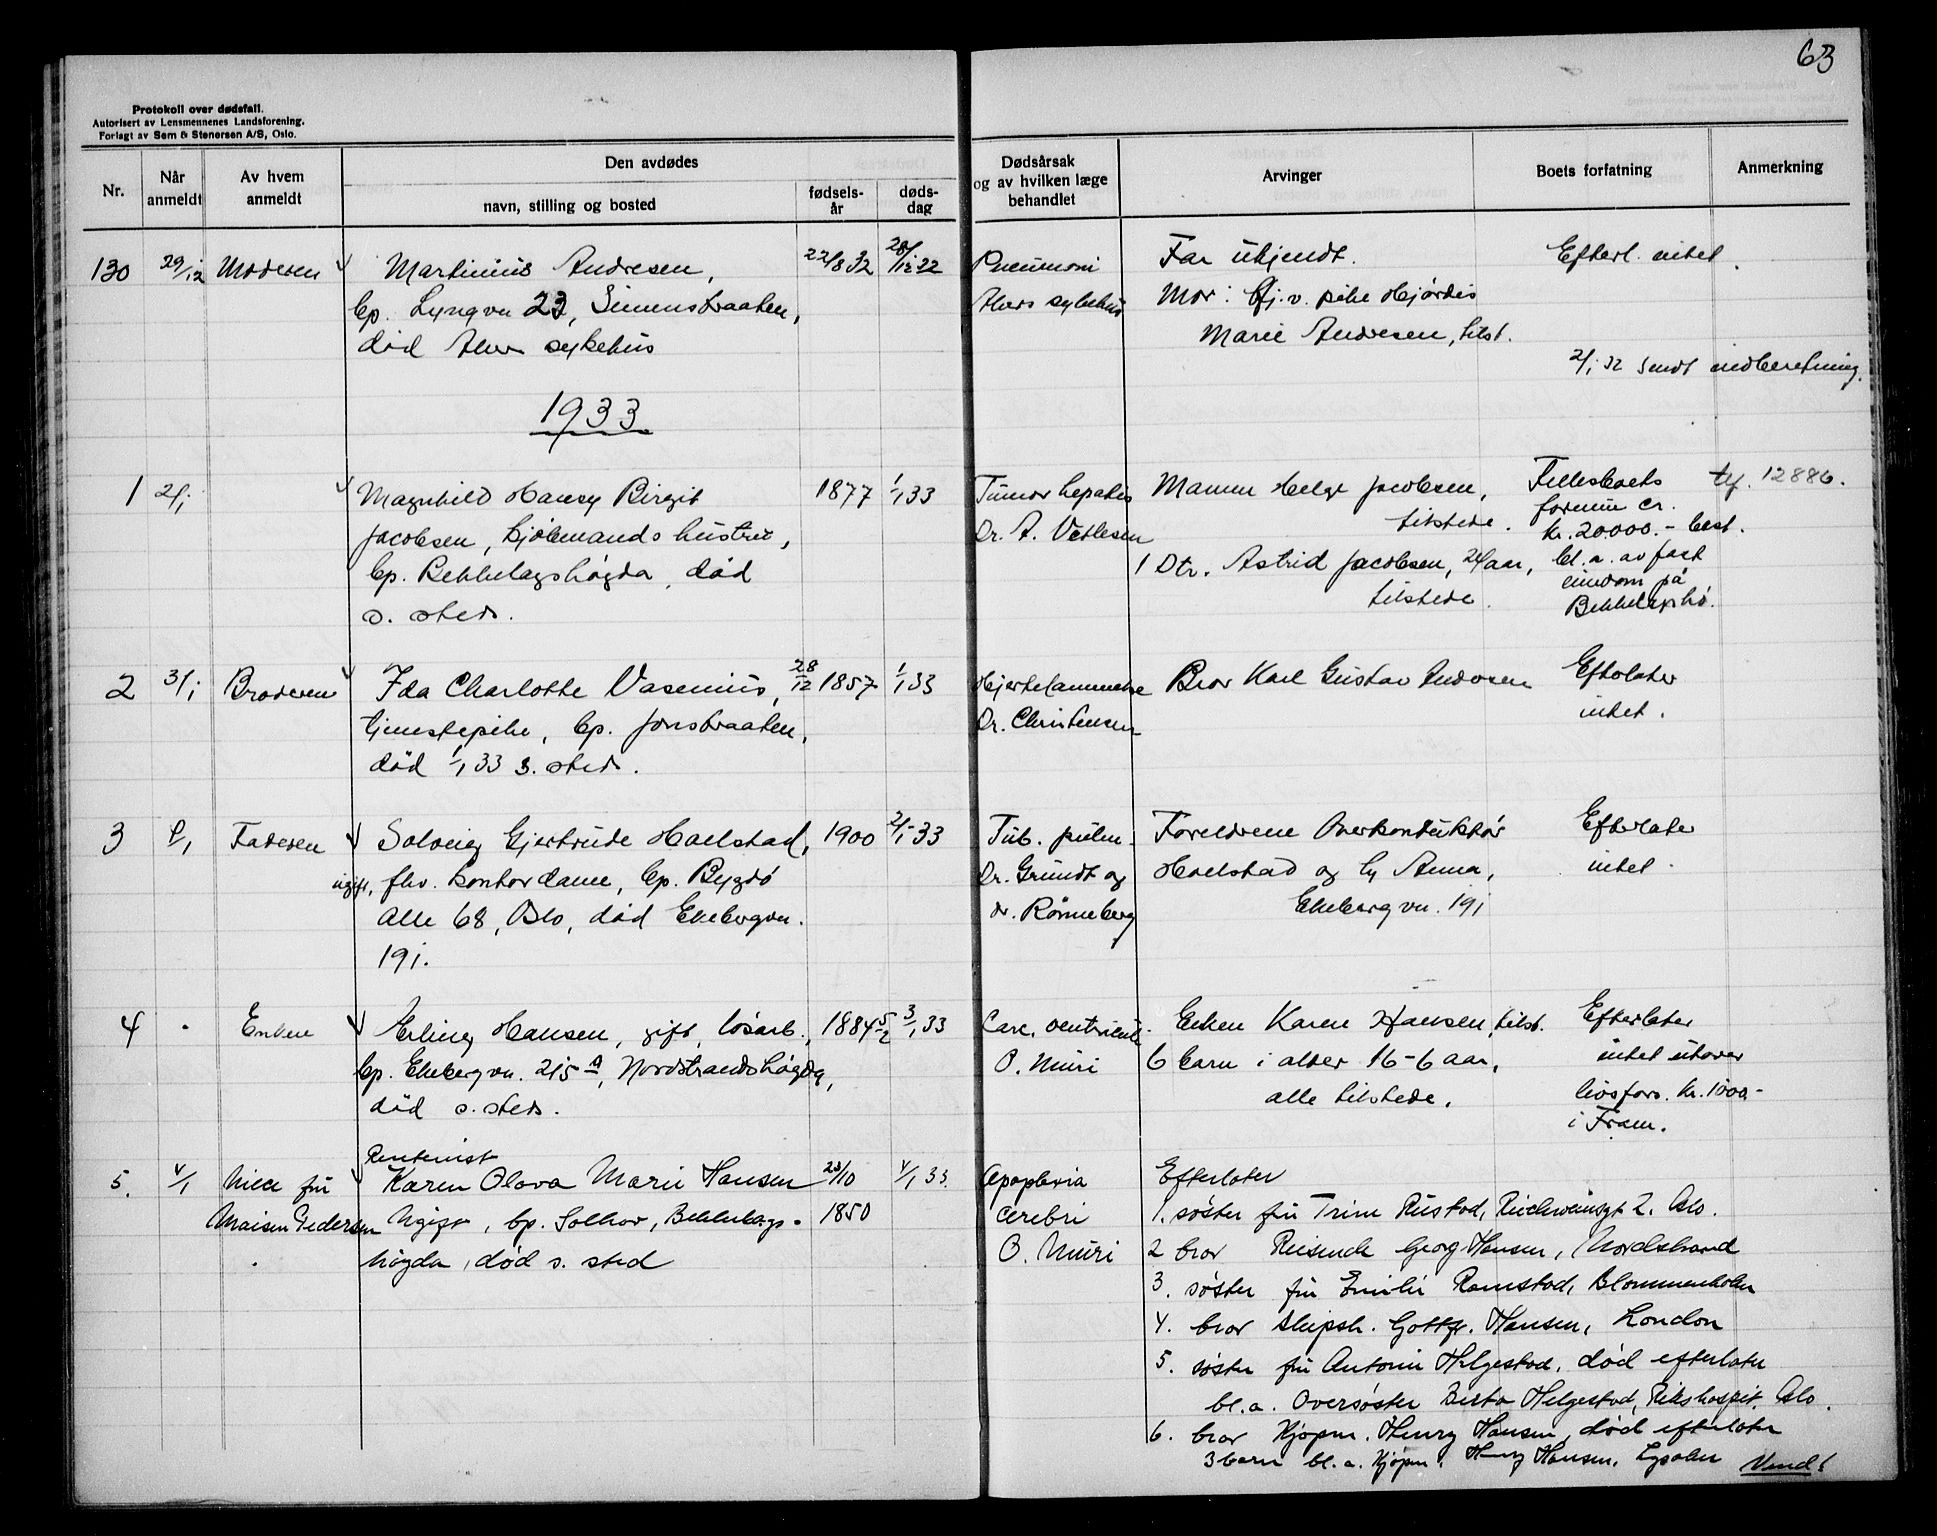 63
Protokoll over dødsfall.
Autorisert av Lensmennenes Landsforening.
Forlagt av Sem & Stenersen A/S, Oslo.
Nr.
Når anmeldt
Av hvem anmeldt
Den avdødes
navn, stilling og bosted
fødselsår
dødsdag
Dødsårsak og av hvilken læge behandlet
Arvinger
Boets forfatning
Anmerkning
130 29/12 Moderen Martinius Andresen, 22/8 32
bp. Lyngvn 23, Simenstraaten,
død Aker sykehus
Pneumoni
Akers sykehus
Far ukjendt.
Mor: Gj.v. pike Hjørdis
Marie Andresen, tilst.
Efterl. intet.
2/1 32 sendt indberetning.
1933
1 2/1 Magnhild Hansy Birgit 1877 1/1 33
Jacobsen, kjøbmands hustru,
bp. Bekkelagshøgda, død
s. sted.
Tumor hepatis
Dr. A. Vetlesen
Mannen Helge Jacobsen,
tilstede.
1 Dtr. Astrid Jacobsen, 24 aar,
tilstede.
Fellesboets
formue ca.
kr. 20.000.- best.
bl. a. av fast
eiendom på
Bekkelagshø.
tlf. 12886.
2 3/1 Broderen Ida Charlotte Vasenius, 28/12 1857 1/1 33
tjenestepike, bp. Jonsbraaten,
død 1/1 33 s. sted.
Hjertelammelse
Dr. Christensen
Bror Karl Gustav Andresen
Efterlater
intet.
3 Faderen Solveig Gjertrude Haelstad, 1900 2/1-33
ugift, fhv. kontordame, bp. Bygdø
Alle 68, Oslo, død Ekebergvn.
191.
Tub. pulm.
Dr. Grundt og
dr. Rönneberg
Foreldrene Overkonduktør
Haelstad og h. Anna,
Ekebergvn. 191
Efterlater
intet.
4 Enken Erling Hansen, gift, løsarb., 1884 5/2 3/1 33
bp. Ekebergvn. 215 A, Nordstrandshøgda,
død s. sted.
Canc. ventriculi
O. Muri
Enken Karen Hansen, tilst.
6 barn i alder 16-6 aar,
alle tilstede.
Efterlater
intet utover
livsfors. kr. 1000.-
i Fram.
Rentenist
5. 4/1 Niece fru Karen Olava Marie Hansen 23/10 4/1 33.
Maisen Pedersen Ugift, bp. Solhov, Bekkelags- 1850
høgda, død s. sted
Apoplexia
cerebri
O. Muri
Efterlater
1. søster fru Trine Rustad, 2. Oslo.
2 bror Reisende Georg Hansen, Nordstrand
3. søster fru Emilie Ramstad, Blommenholm
4. bror skipsh. Gottfr. Hansen, London
5. søster fru Antonie Helgestad, død efterlater
bl.a. Oversøster Berta Helgestad, Rikshospit. Oslo.
6. bror Kjøpm. Henry Hansen, død efterlater
3 barn bl. a. Kjøpm. Henry Hansen, Lysaker
Vend!